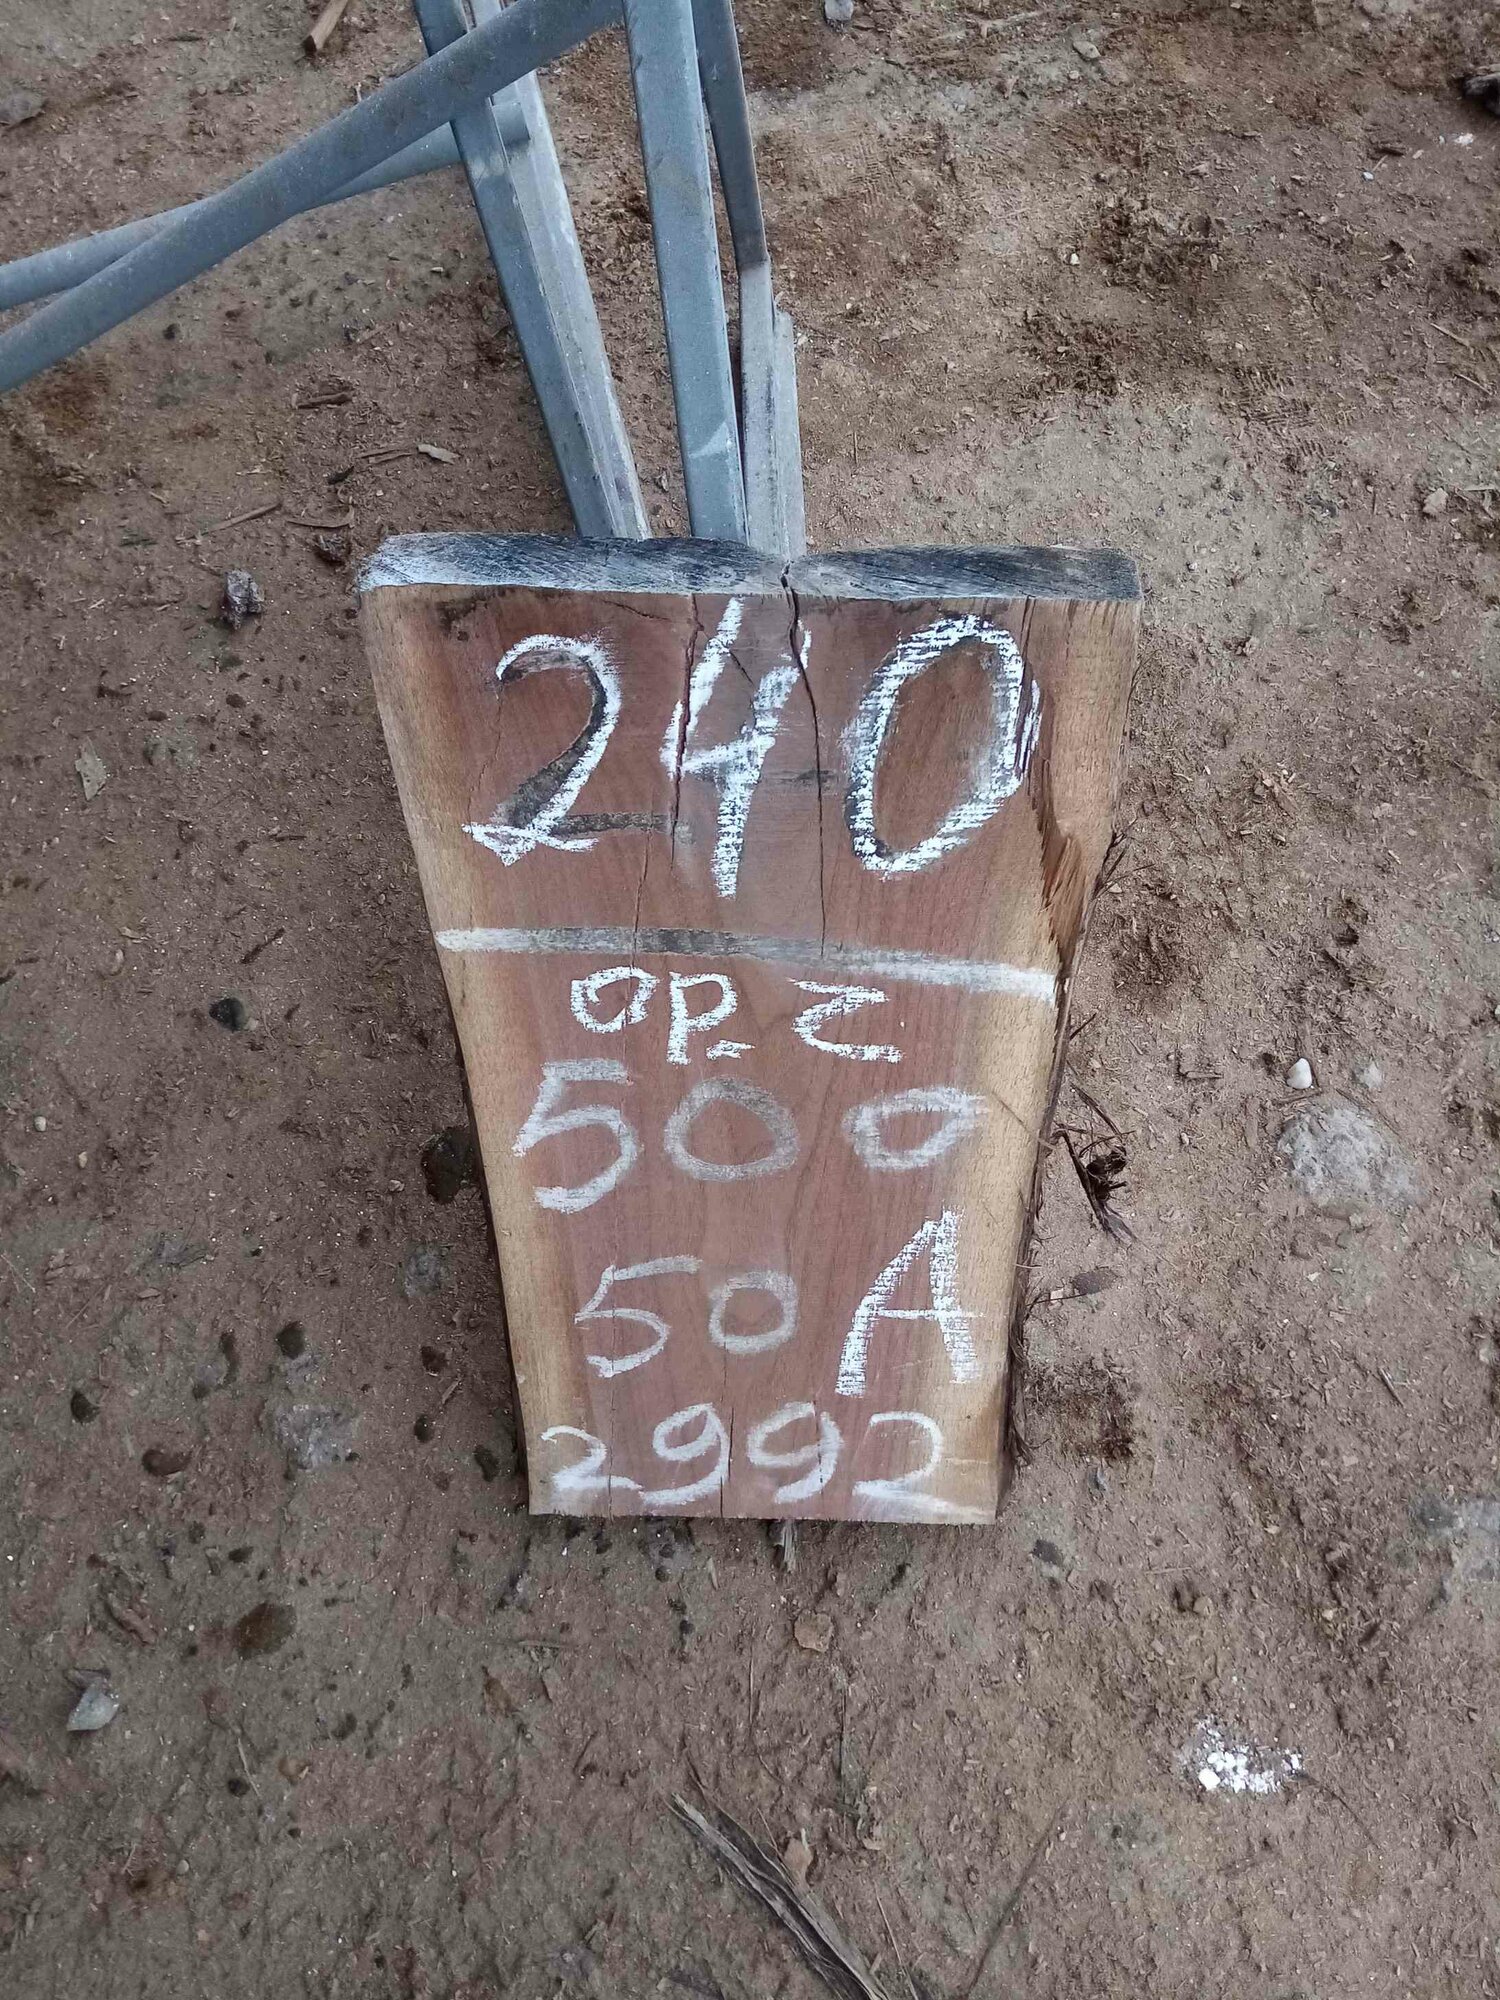 240
op. z
500
50 A
2992